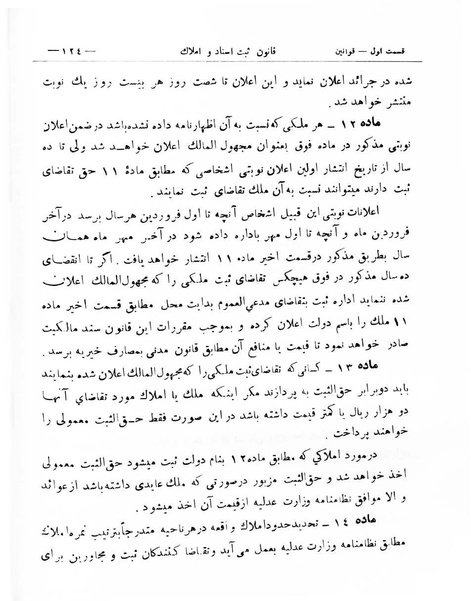 قسمت اول — قوانین قانون ثبت اسناد و املاك —۱۲٤—
شده در جرائد اعلان نماید و این اعلان تا شصت روز هر بیست روز یك نوبت
منتشر خواهد شد .
ماده ۱۲ ــ هر ملکی که نسبت به آن اظهارنامه داده نشده باشد در ضمن اعلان
نوبتی مذکور در ماده فوق بعنوان مجهول المالك اعلان خواهد شد ولی تا ده
سال از تاریخ انتشار اولین اعلان نوبتی اشخاصی که مطابق مادهٔ ۱۱ حق تقاضای
ثبت دارند میتوانند نسبت به آن ملك تقاضای ثبت نمایند .
اعلانات نوبتی این قبیل اشخاص آنچه تا اول فروردین هر سال برسد در آخر
فروردین ماه و آنچه تا اول مهر باداره داده شود در آخر مهر ماه همان
سال بطریق مذکور در قسمت اخیر ماده ۱۱ انتشار خواهد یافت . اگر تا انقضای
ده سال مذکور در فوق هیچکس تقاضای ثبت ملکی را که مجهول المالك اعلان
شده ننماید اداره ثبت بتقاضای مدعی العموم بدایت محل مطابق قسمت اخیر ماده
۱۱ ملك را باسم دولت اعلان کرده و بموجب مقررات این قانون سند مالکیت
صادر خواهد نمود تا قیمت یا منافع آن مطابق قانون مدنی بمصارف خیریه برسد .
ماده ۱۳ ــ کسانی که تقاضای ثبت ملکی را که مجهول المالك اعلان شده بنمایند
باید دو برابر حق الثبت به پردازند مگر اینکه ملك یا املاك مورد تقاضای آنها
دو هزار ریال یا کمتر قیمت داشته باشد در این صورت فقط حق الثبت معمولی را
خواهند پرداخت .
در مورد املاکی که مطابق ماده ۱۲ بنام دولت ثبت میشود حق الثبت معمولی
اخذ خواهد شد و حق الثبت مزبور در صورتی که ملك عایدی داشته باشد از عوائد
و الا موافق نظامنامه وزارت عدلیه از قیمت آن اخذ میشود .
ماده ۱٤ ــ تحدید حدود املاك واقعه در هر ناحیه متدرجاً بترتیب نمره املاك
مطابق نظامنامه وزارت عدلیه بعمل می آید و تقاضا کنندگان ثبت و مجاورین برای